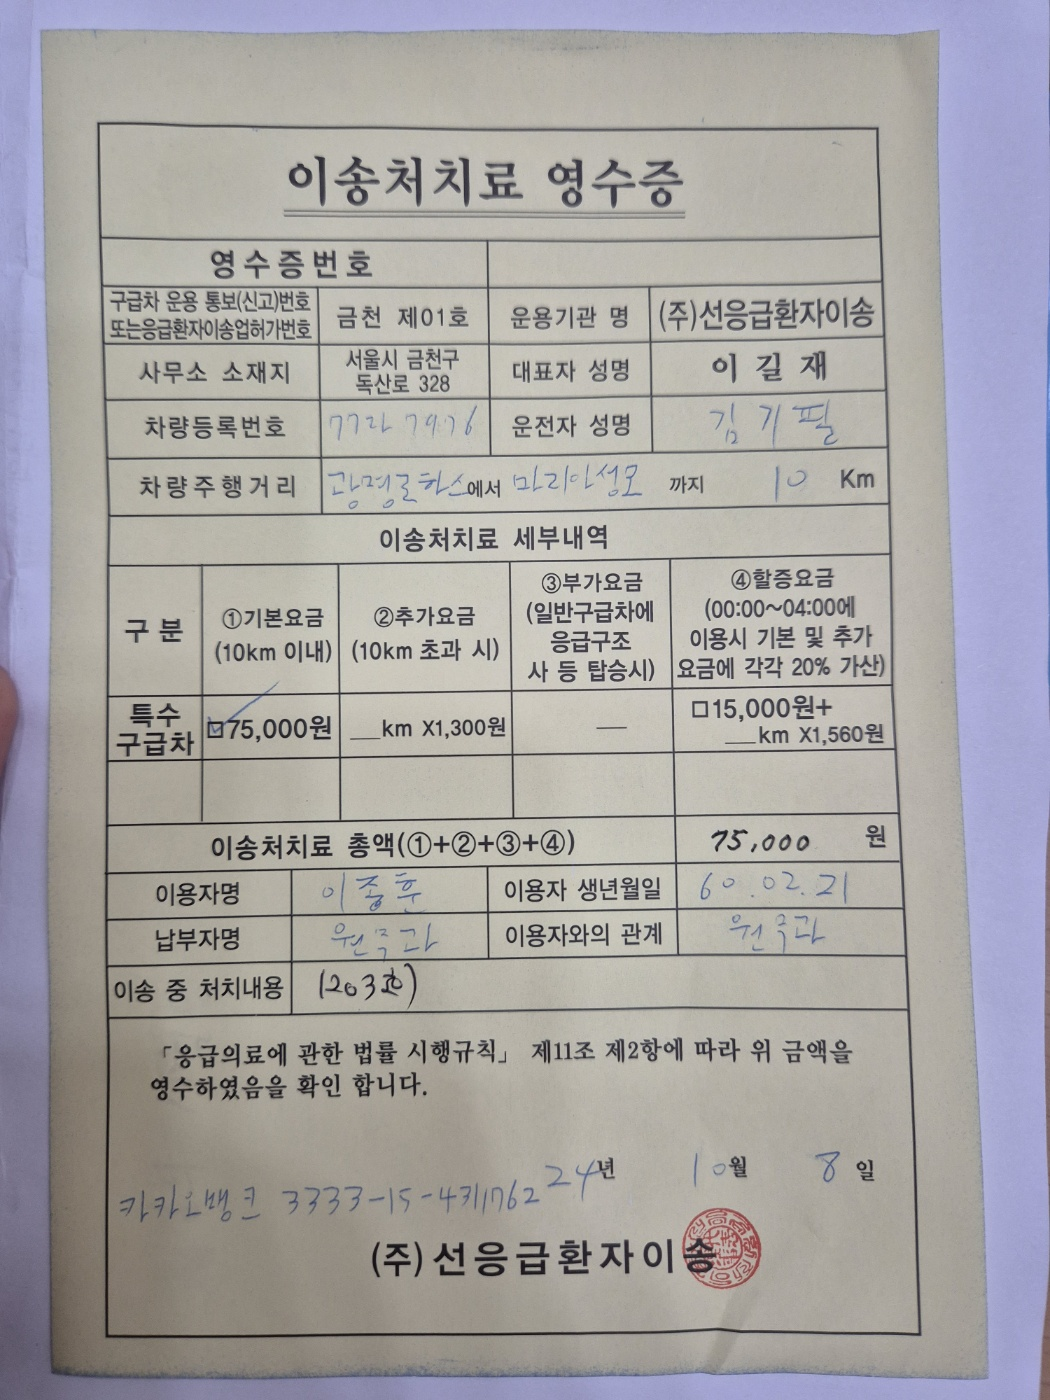 이송처치료 영수증
영수증번호
구급차 운용 통보(신고)번호
또는응급환자이송업허가번호
금천 제01호
운용기관 명
(주)선응급환자이송
사무소 소재지
서울시 금천구
독산로 328
대표자 성명
이길재
차량등록번호
77라 7976
운전자 성명
김기필
차량주행거리
광명로하스에서 마리아성모 까지 10 Km
이송처치료 세부내역
구분
①기본요금
(10km 이내)
②추가요금
(10km 초과 시)
③부가요금
(일반구급차에
응급구조
사 등 탑승시)
④할증요금
(00:00~04:00에
이용시 기본 및 추가
요금에 각각 20% 가산)
특수
구급차
75,000원
__km X1,300원
—
15,000원+
__km X1,560원
이송처치료 총액(①+②+③+④)
75,000 원
이용자명
이종훈
이용자 생년월일
60.02.21
납부자명
원무과
이용자와의 관계
원무과
이송 중 처치내용
「응급의료에 관한 법률 시행규칙」 제11조 제2항에 따라 위 금액을
영수하였음을 확인 합니다.
24년 10월 8일
카카오뱅크 3333-15-
(주)선응급환자이송